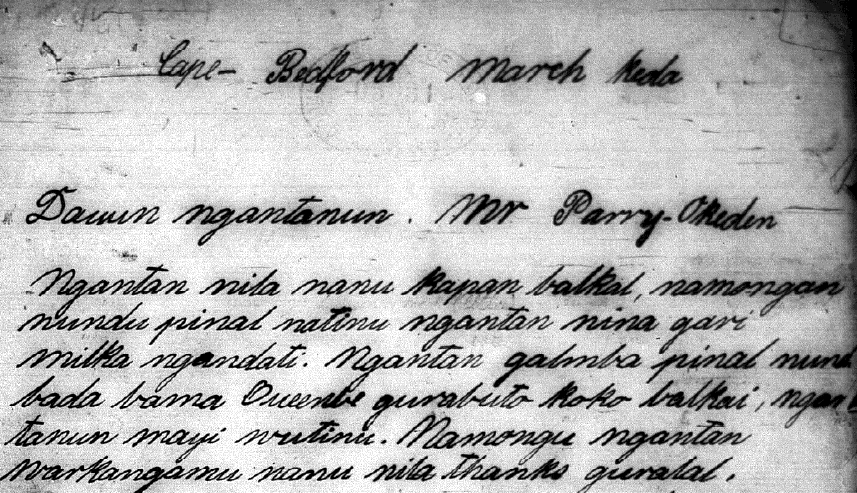 Cape- Bedford March keda
Dawun ngantanun. Mr Parry-Okeden
Ngantan nila nanu kapan balkal, namongan
nundu pinal natinu ngantan nina gari
milka ngandati. Ngantan galmba pinal
bada bama Queenbe gurabuto koko balkai,
tanun mayi wutinu. Namongu ngantan
warkangamu nanu nila thanks guralal.